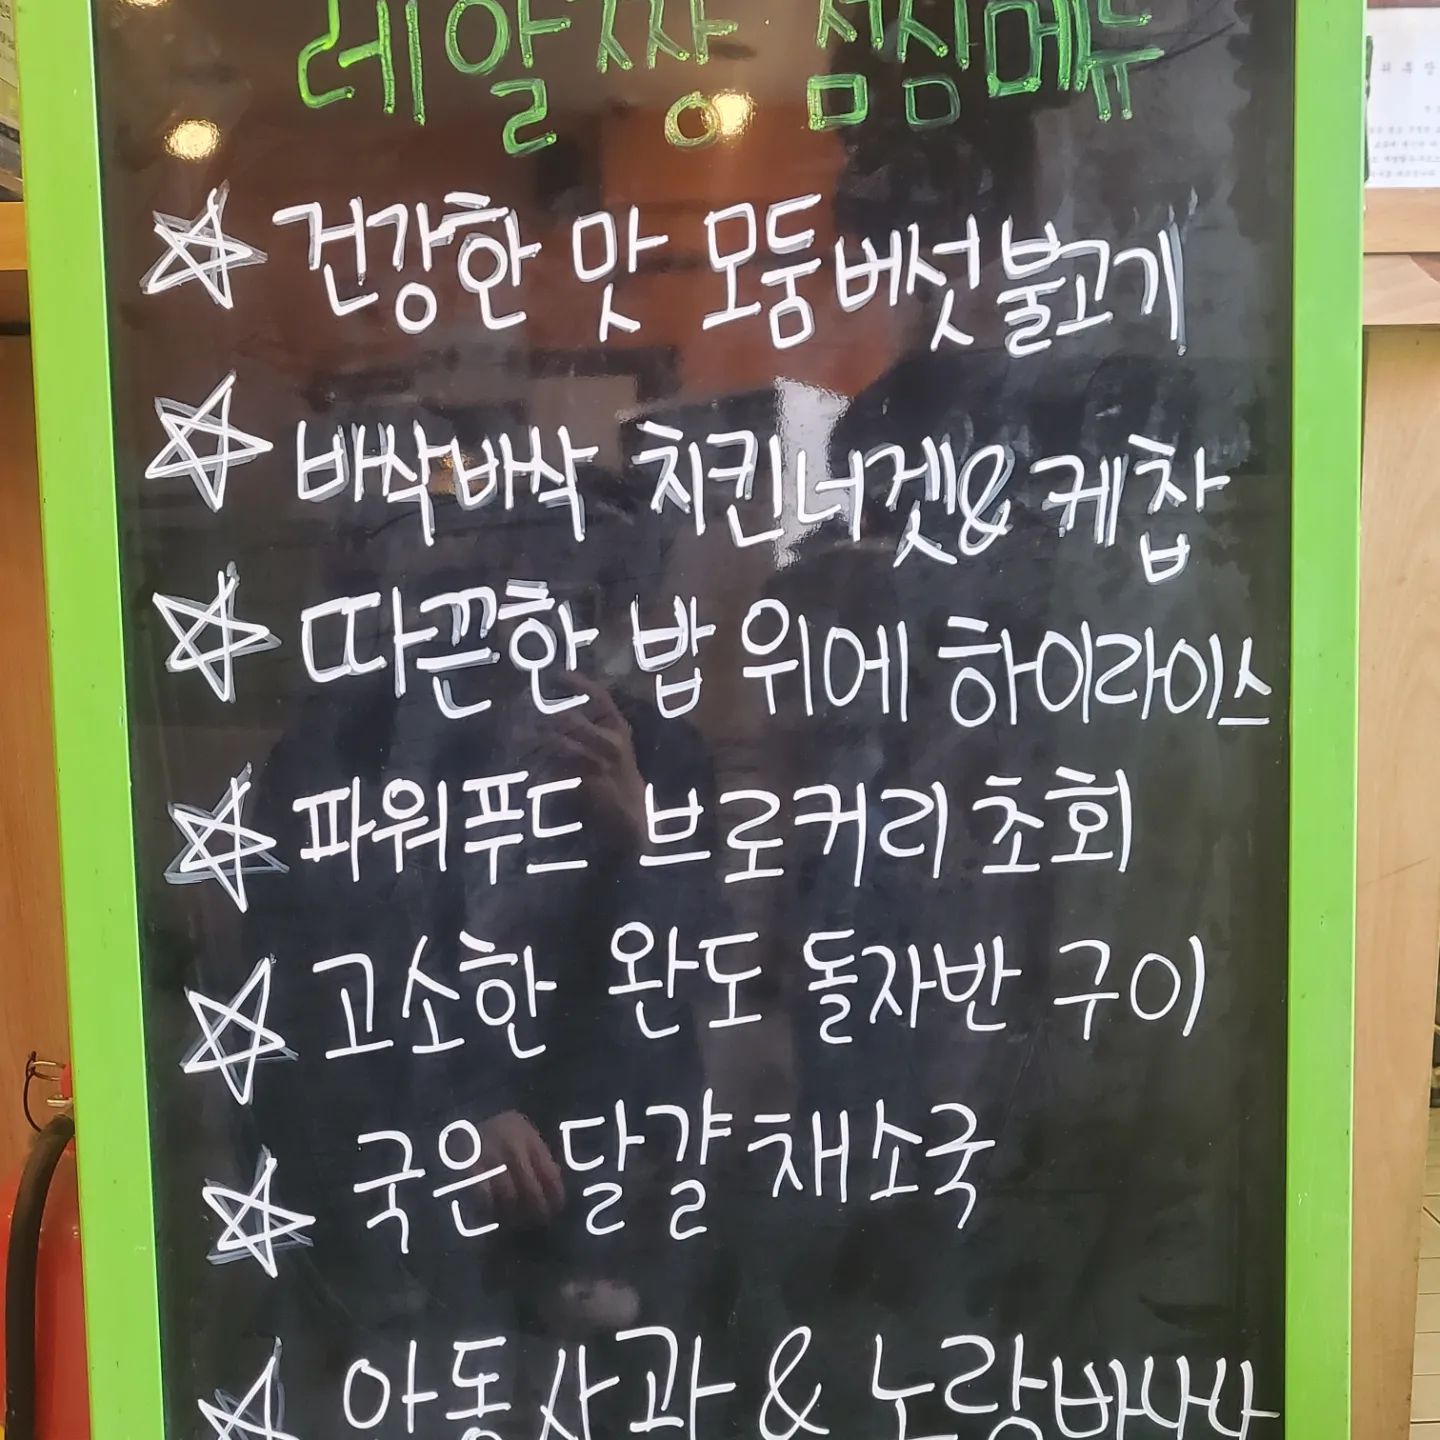 레알짱 점심메뉴
건강한 맛 모둠버섯불고기
바삭바삭 치킨너겟& 케찹
따끈한 밥 위에 하이라이스
파워푸드 브로커리초회
고소한 완도 돌자반 구이
국은 달걀채소국
안동사과 & 노랑바나나